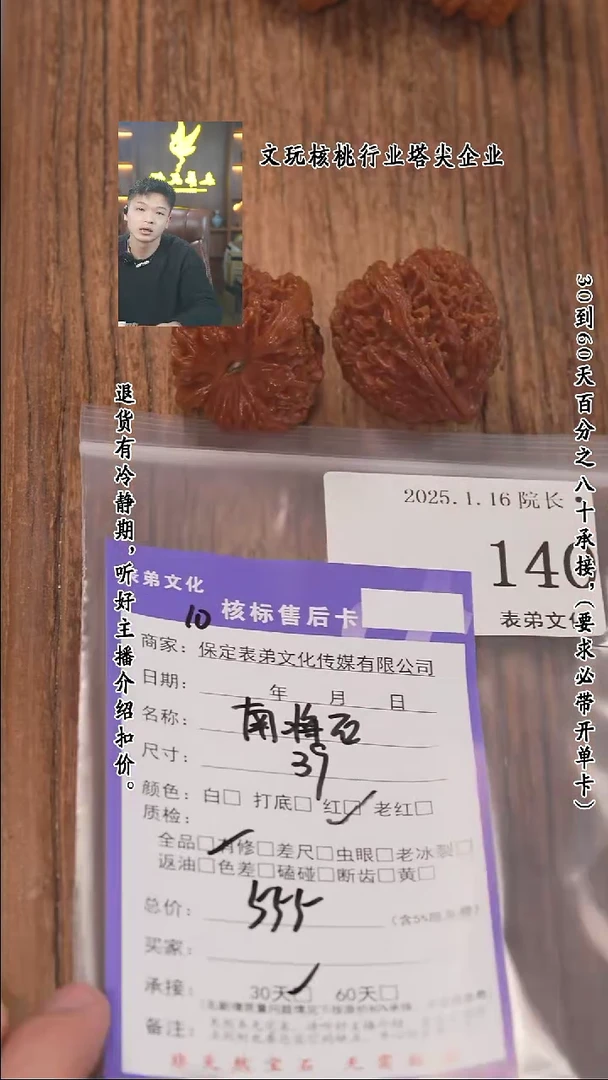 文玩核桃行业塔尖企业
30到60天百分之八十承接，（要求必带开单卡）
退货有冷静期，听好主播介绍扣价。
2025.1.16 院长
140
表弟文化
表弟文化
10 核标售后卡
商家：保定表弟文化传媒有限公司
日期： 年 月 日
名称：南将石
尺寸：39
颜色：白□ 打底□ 红☑ 老红□
质检：
全品☑有修□差尺□虫眼□老冰裂□
返油□色差□磕碰□断齿□黄□
总价：555
买家：
承接：30天☑ 60天□
备注：